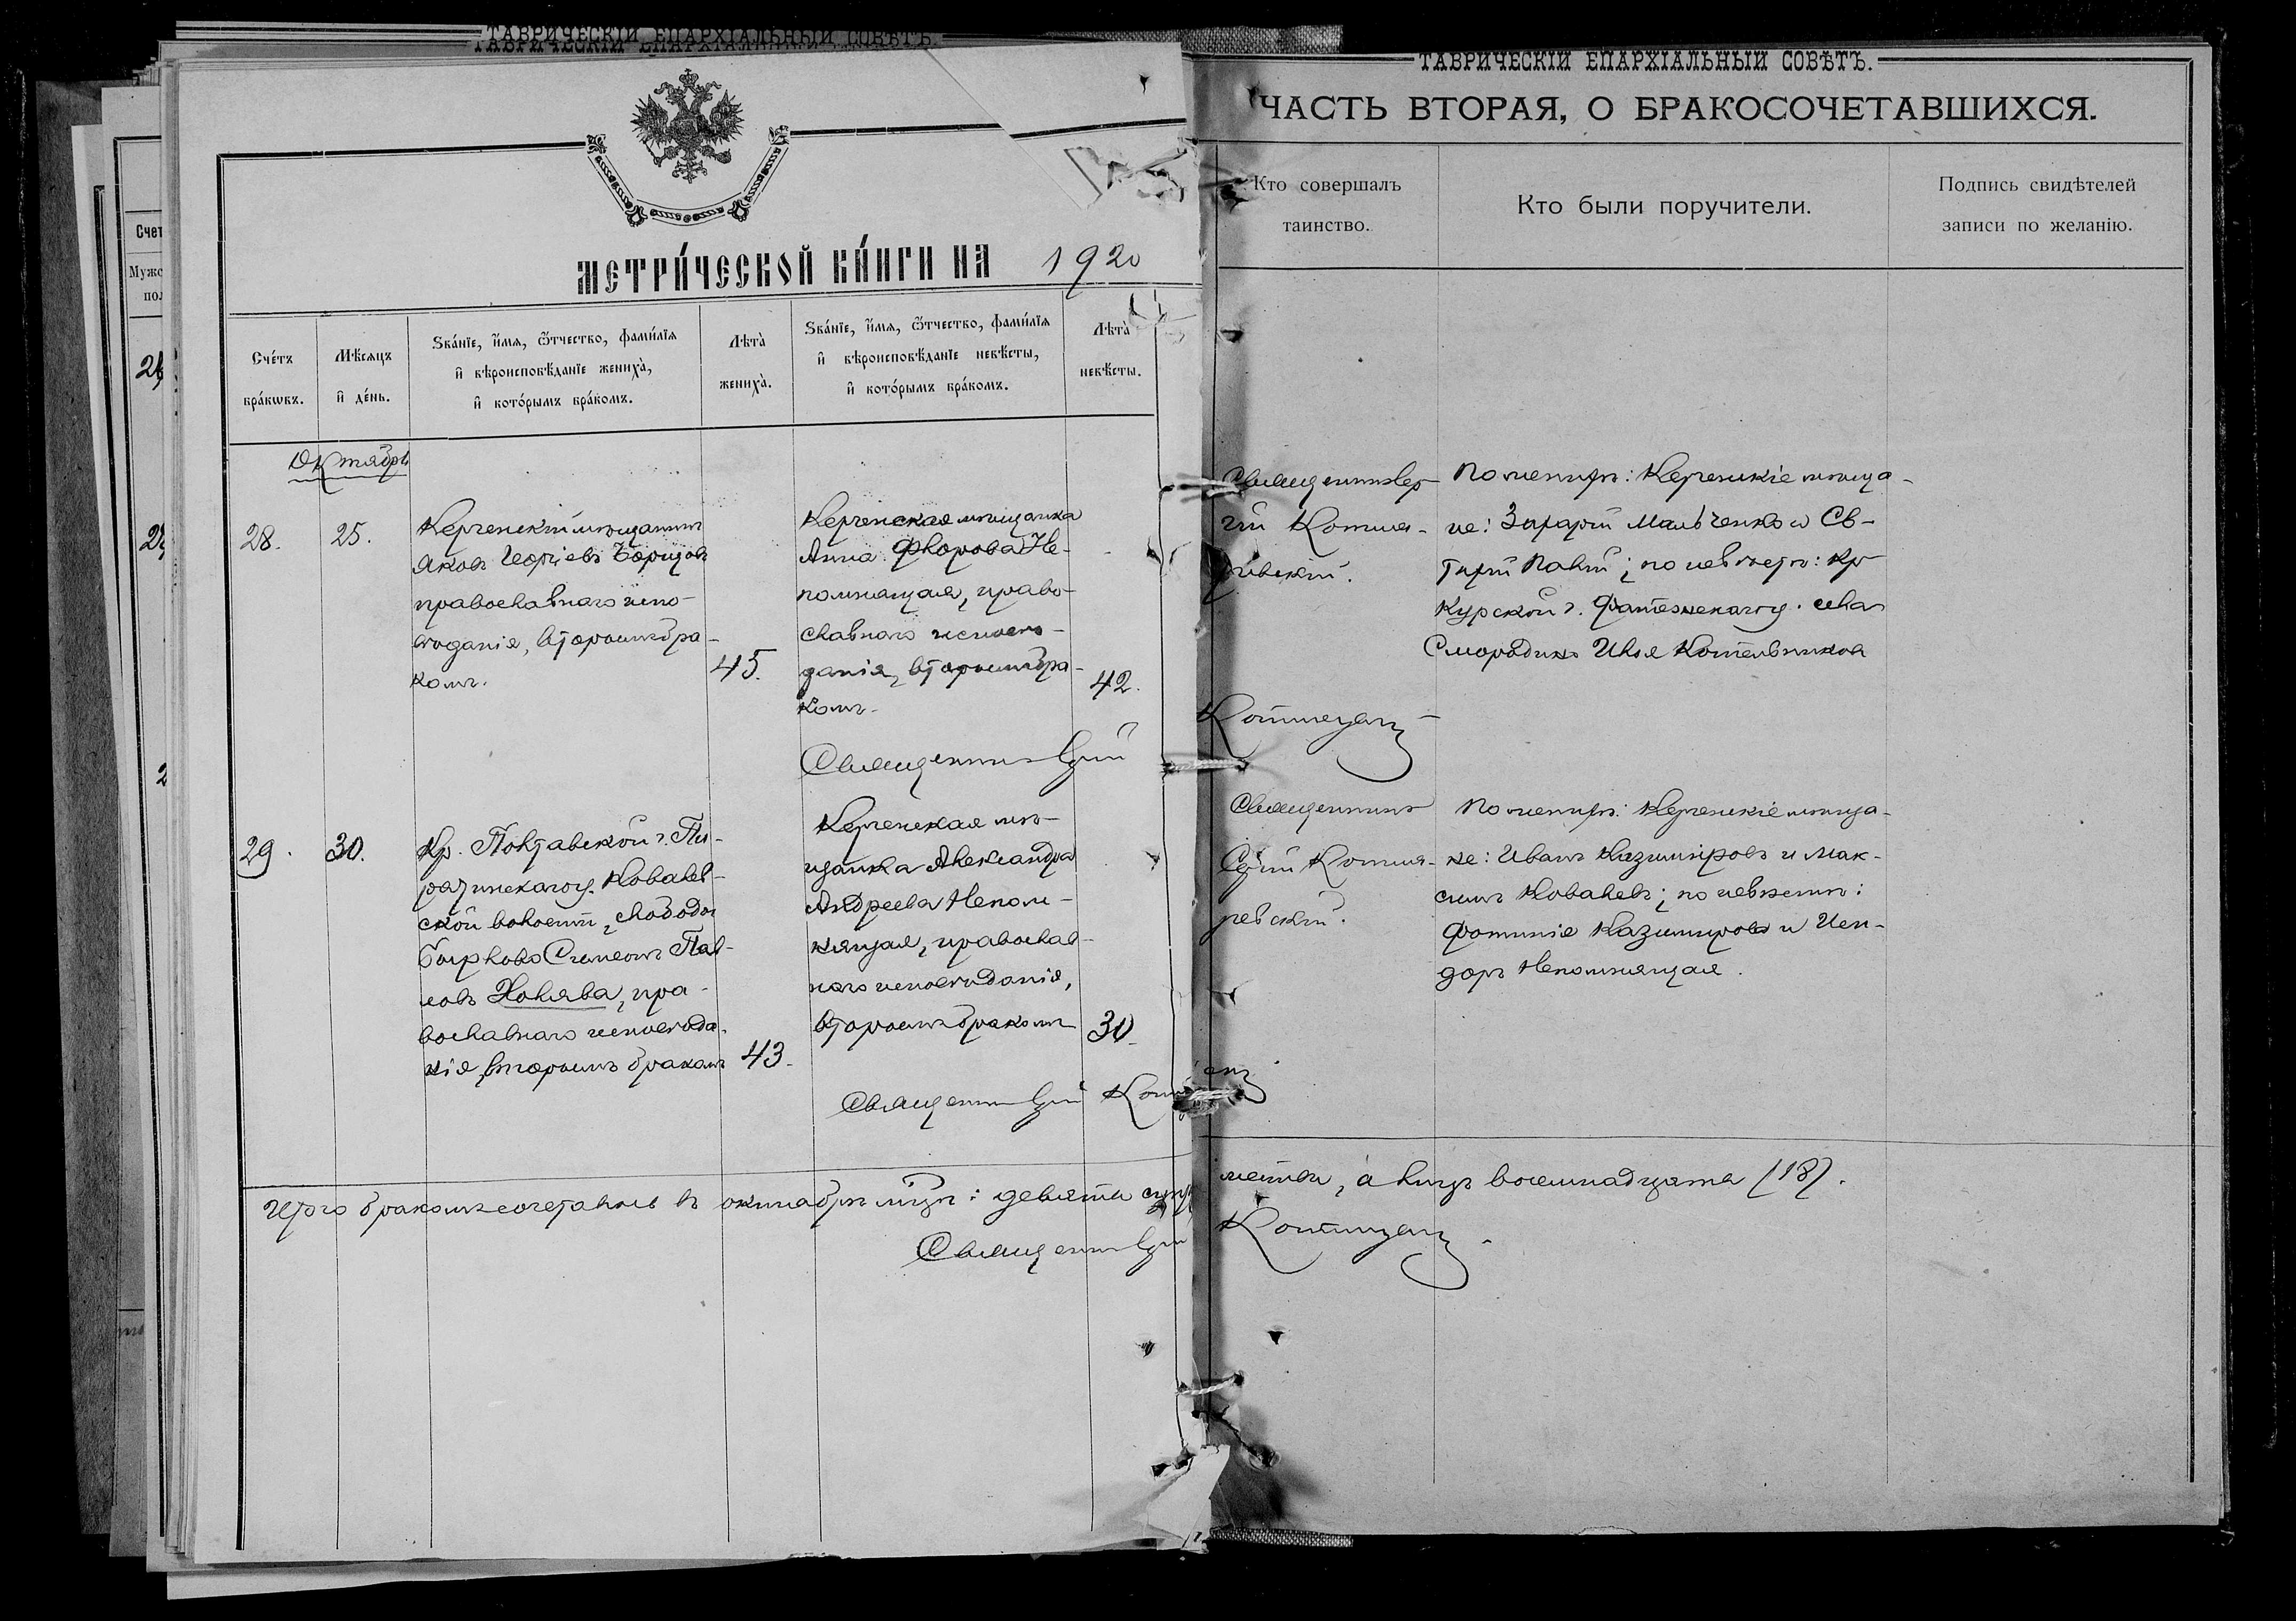 ТАВРИЧЕСКІЙ ЕПАРХІАЛЬНЫЙ СОВѢТЪ.
МЕТРИ́ЧЕСКОЙ КНИ́ГИ НА 1920
Сче́тъ бра́кѡвъ.
Мѣ́сяцъ и҆ де́нь.
Ѕва́нїе, и҆́мѧ, ѻ҆́тчество, фами́лїѧ
и҆ вѣроисповѣ́данїе жениха̀,
и҆ кото́рымъ бра́комъ.
Лѣта̀ жениха̀.
Ѕва́нїе, и҆́мѧ, ѻ҆́тчество, фами́лїѧ
и҆ вѣроисповѣ́данїе невѣ́сты,
и҆ кото́рымъ бра́комъ.
Лѣта̀ невѣ́сты.
Октябрь
28.
25.
Керченскій мѣщанинъ
Яковъ Георгіевъ Борцовъ
православнаго испо-
вѣданія, вторымъ бра-
комъ.
45.
Керченская мѣщанка
Анна Флорова Не-
помнящая, право-
славнаго исповѣ-
данія, вторымъ бра-
комъ.
42.
Священникъ Сергій
29.
30.
Кр. Полтавской г. Пи-
рятинскаго у. Ковалев-
ской волости, слободы
Симеонъ Пав-
ловъ Холява, пра-
вославнаго исповѣда-
нія, вторымъ бракомъ
43.
Керченская мѣ-
щанка Александра
Андреева Непом-
нящая, православ-
наго исповѣданія,
вторымъ бракомъ
30.
Священникъ Сергій
Итого бракомъ сочеталось въ октябрѣ мѣцѣ: девять
Священникъ Сергій
ТАВРИЧЕСКІЙ ЕПАРХІАЛЬНЫЙ СОВѢТЪ.
ЧАСТЬ ВТОРАЯ, О БРАКОСОЧЕТАВШИХСЯ.
Кто совершалъ
таинство.
Кто были поручители.
Подпись свидѣтелей
записи по желанію.
Священникъ Сер-
гій
По женихѣ: Керченскіе мѣща-
не: Захарій Мальченко и
по невѣстѣ: Кр
Курской г. Фатежскаго у. села
Смородина Илья Котельниковъ
Священникъ
Сергій
По женихѣ: Керченскіе мѣща-
не: Иванъ Казиміровъ и Мак-
симъ Ковалевъ; по невѣстѣ:
Фотинія Казимирова и Иси-
доръ Непомнящая.
а лицъ восемнадцать (18).